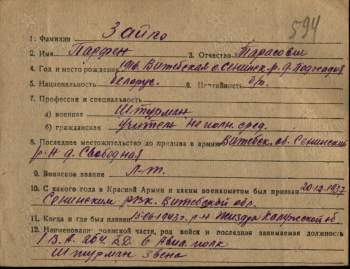 594
1. Фамилия Зайго
2. Имя Парфен 3. Отчество Тарасович
4. Год и место рождения Витебская о. Сенинск. р. д.
5. Национальность белорус. 6. Партийность б/п.
7. Профессия и специальность
а) военная Штурман
б) гражданская учитель неполн. сред.
8. Последнее местожительство до призыва в армию Витебск. об. Сенинский
р-н д. Свобода
9. Воинское звание Л-т.
10. С какого года в Красной Армии и каким военкоматом был призван 20.12.1937
Сенинским рвк. Витебской обл.
11. Когда и где был пленен 15.6.1943 г. р-н Жиздра Калужской об.
12. Наименование воинской части, род войск и последняя занимаемая должность
1 В.А. 264 6 Авиа. полк
Штурман звена